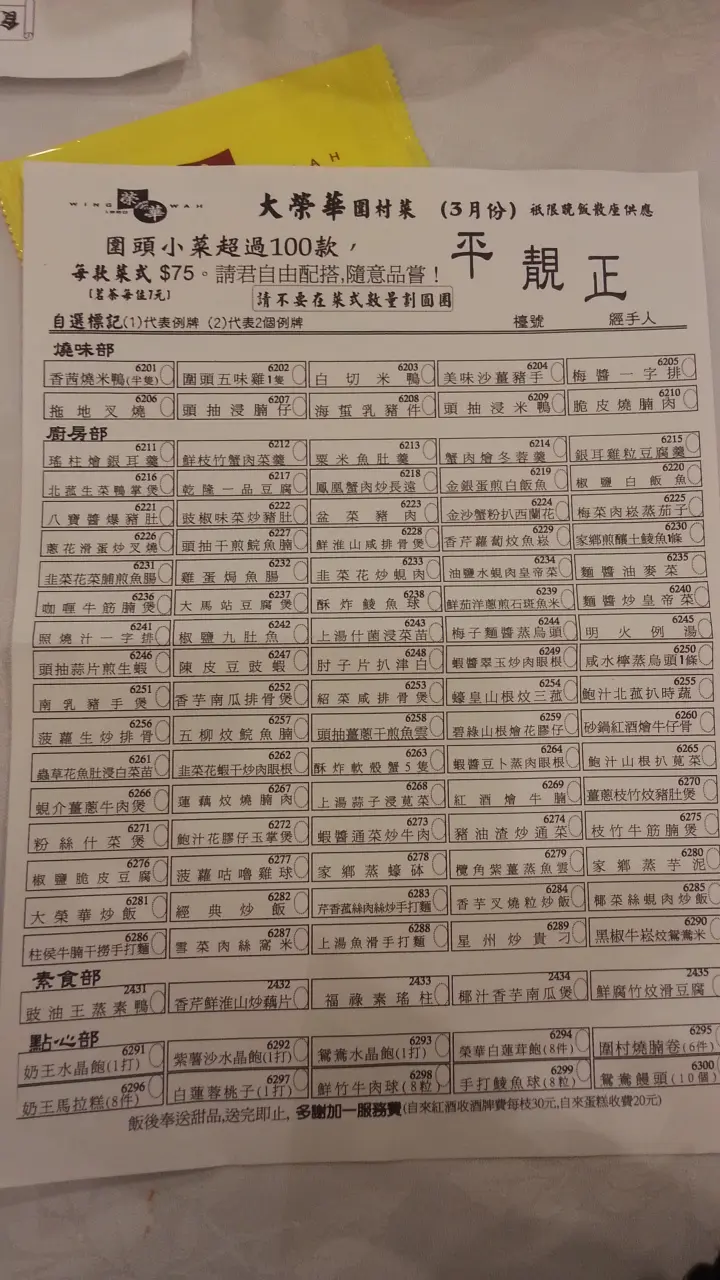 食
WING WAH
榮華
大榮華圍村菜 (3月份) 祇限晚飯散座供應
圍頭小菜超過100款,
平靚正
每款菜式 $75。請君自由配搭,隨意品嘗!
(茗茶每位7元)
請不要在菜式數量劃圓圈
自選標記(1)代表例牌 (2)代表2個例牌 檯號 經手人
燒味部
6201 6202 6203 6204 6205
香茜燒米鴨(半隻) 圍頭五味雞1隻 白切米鴨 美味沙薑豬手 梅醬一字排
6206 6207 6208 6209 6210
拖地叉燒 頭抽浸腩仔 海蜇乳豬件 頭抽浸米鴨 脆皮燒腩肉
廚房部
6211 6212 6213 6214 6215
瑤柱燴銀耳羹 鮮枝竹蟹肉菜羹 粟米魚肚羹 蟹肉燴冬蓉羹 銀耳雞粒豆腐羹
6216 6217 6218 6219 6220
北菰生菜鴨掌煲 乾隆一品豆腐 鳳凰蟹肉炒長遠 金銀蛋煎白飯魚 椒鹽白飯魚
6221 6222 6223 6224 6225
八寶醬爆豬肚 豉椒味菜炒豬肚 盆菜豬肉 金沙蟹粉扒西蘭花 梅菜肉崧蒸茄子
6226 6227 6228 6229 6230
蔥花滑蛋炒叉燒 頭抽干煎鯇魚腩 鮮淮山咸排骨煲 香芹蘿蔔炆魚崧 家鄉煎釀土鯪魚1條
6231 6232 6233 6234 6235
韭菜花菜脯煎魚腸 雞蛋焗魚腸 韭菜花炒蜆肉 油鹽水蜆肉皇帝菜 麵醬油麥菜
6236 6237 6238 6239 6240
咖喱牛筋腩煲 大馬站豆腐煲 酥炸鯪魚球 鮮茄洋蔥煎石斑魚米 麵醬炒皇帝菜
6241 6242 6243 6244 6245
照燒汁一字排 椒鹽九肚魚 上湯什菌浸菜苗 梅子麵醬蒸烏頭 明火例湯
6246 6247 6248 6249 6250
頭抽蒜片煎生蝦 陳皮豆豉蝦 肘子片扒津白 蝦醬翠玉炒肉眼根 咸水檸蒸烏頭1條
6251 6252 6253 6254 6255
南乳豬手煲 香芋南瓜排骨煲 紹菜咸排骨煲 蠔皇山根炆三菰 鮑汁北菰扒時蔬
6256 6257 6258 6259 6260
菠蘿生炒排骨 五柳炆鯇魚腩 頭抽薑蔥干煎魚雲 碧綠山根燴花膠仔 砂鍋紅酒燴牛仔骨
6261 6262 6263 6264 6265
蟲草花魚肚浸白菜苗 韭菜花蝦干炒肉眼根 酥炸軟殼蟹5隻 蝦醬豆卜蒸肉眼根 鮑汁山根扒莧菜
6266 6267 6268 6269 6270
蜆介薑蔥牛肉煲 蓮藕炆燒腩肉 上湯蒜子浸莧菜 紅酒燴牛腩 薑蔥枝竹炆豬肚煲
6271 6272 6273 6274 6275
粉絲什菜煲 鮑汁花膠仔玉掌煲 蝦醬通菜炒牛肉 豬油渣炒通菜 枝竹牛筋腩煲
6276 6277 6278 6279 6280
椒鹽脆皮豆腐 菠蘿咕嚕雞球 家鄉蒸蠔砵 欖角紫薑蒸魚雲 家鄉蒸芋泥
6281 6282 6283 6284 6285
大榮華炒飯 經典炒飯 芹香菰絲肉絲炒手打麵 香芋叉燒粒炒飯 椰菜絲蜆肉炒飯
6286 6287 6288 6289 6290
柱侯牛腩干撈手打麵 雪菜肉絲窩米 上湯魚滑手打麵 星州炒貴刁 黑椒牛崧炆鴛鴦米
素食部
2431 2432 2433 2434 2435
豉油王蒸素鴨 香芹鮮淮山炒藕片 福祿素瑤柱 椰汁香芋南瓜煲 鮮腐竹炆滑豆腐
點心部
6291 6292 6293 6294 6295
奶王水晶飽(1打) 紫薯沙水晶飽(1打) 鴛鴦水晶飽(1打) 榮華白蓮茸飽(8件) 圍村燒腩卷(6件)
6296 6297 6298 6299 6300
奶王馬拉糕(8件) 白蓮蓉桃子(1打) 鮮竹牛肉球(8粒) 手打鯪魚球(8粒) 鴛鴦饅頭(10個)
飯後奉送甜品,送完即止, 多謝加一服務費(自來紅酒收酒牌費每枝30元,自來蛋糕收費20元)